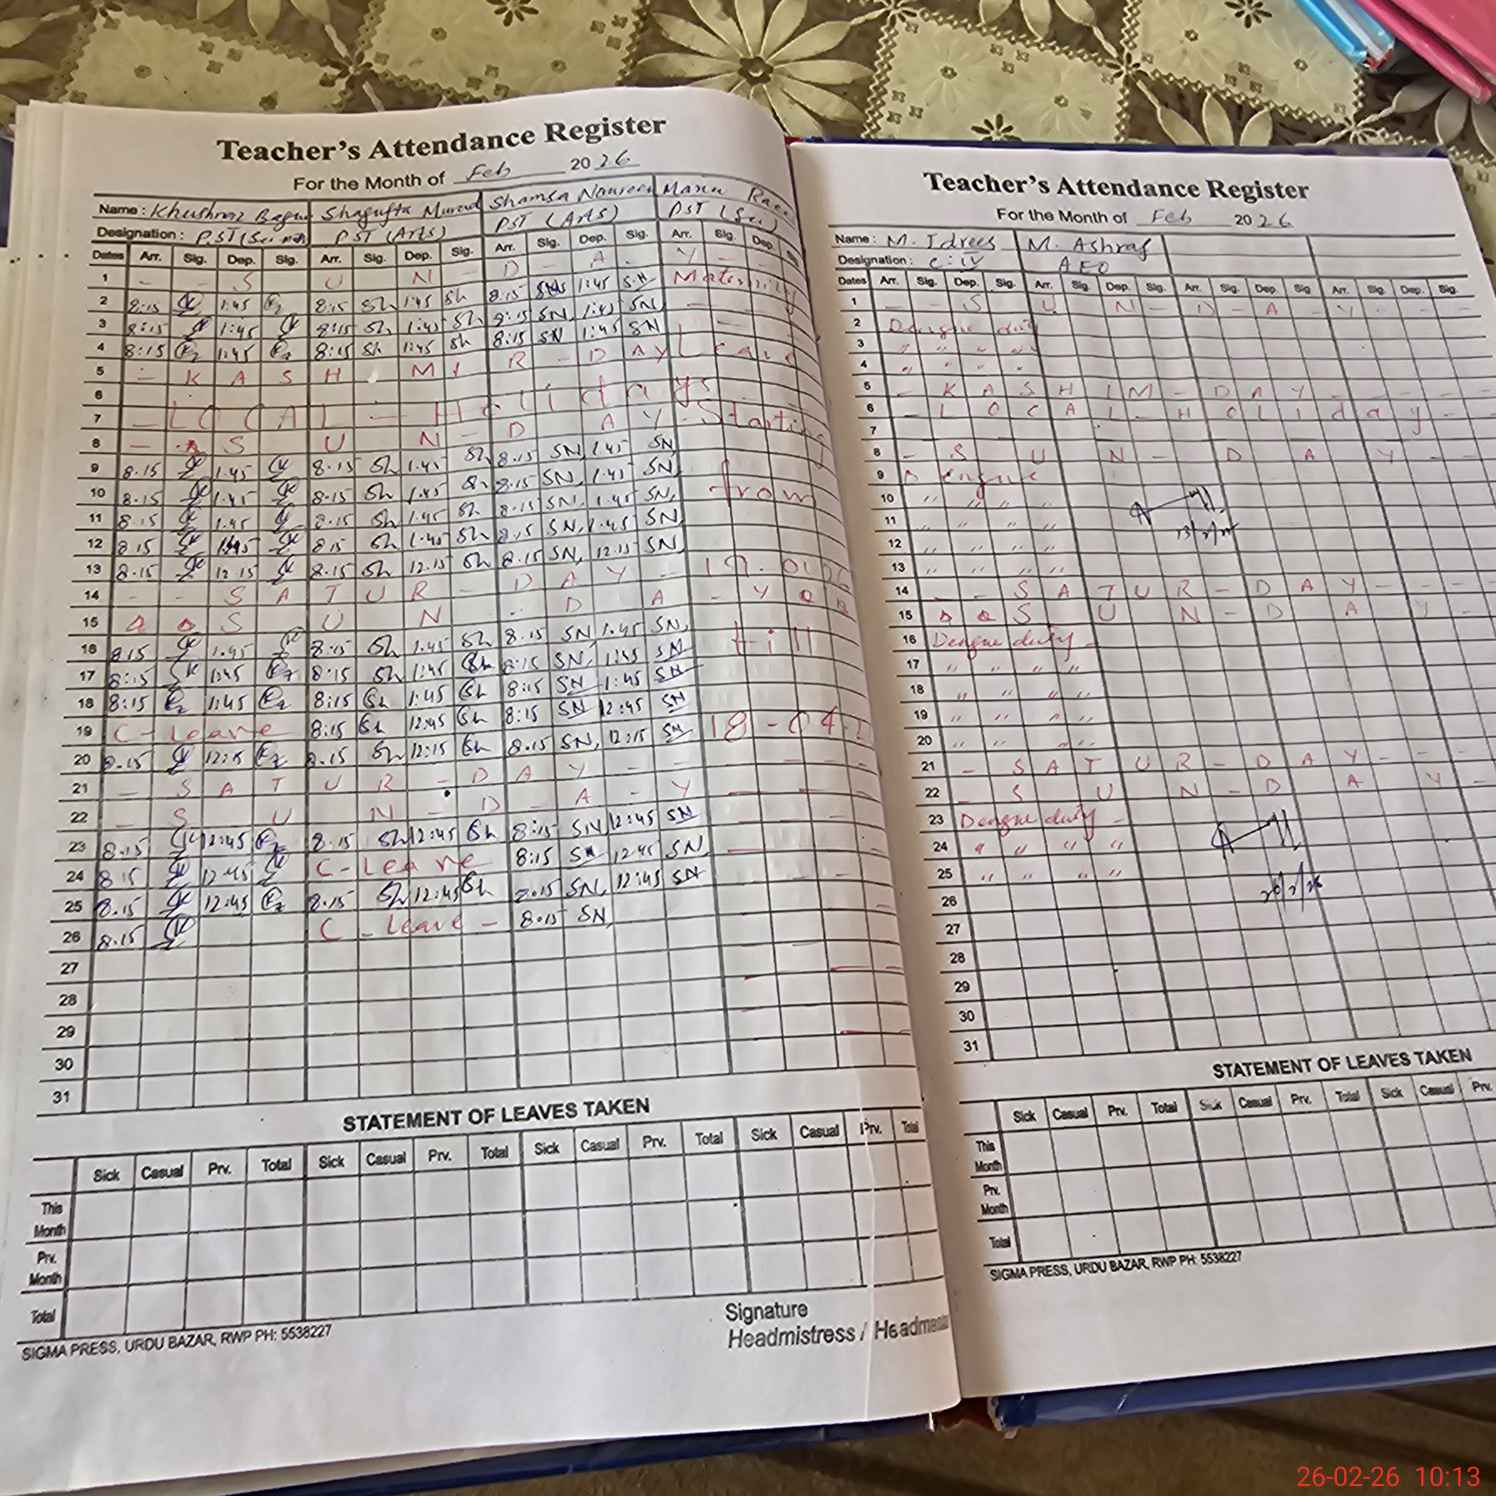 Teacher's Attendance Register
For the Month of Feb 2026
Name : Khushnaz Begum Shagufta Murad Shamsa Noureen Maria
Designation : PST (Sci PST (Arts) PST (Arts) PST (Sci)
Dates Arr. Sig. Dep. Sig. Arr. Sig. Dep. Sig. Arr. Sig. Dep. Sig. Arr. Sig. Dep. Sig.
1 - - S U N - D - A - Y -
2 8:15 1:45 8:15 Sh 1:45 Sh 8:15 SN 1:45 SN Maternity
3 8:15 1:45 8:15 Sh 1:45 Sh 8:15 SN 1:45 SN
4 8:15 1:45 8:15 Sh 1:45 Sh 8:15 SN 1:45 SN Leave
5 - K A S H M I R - D A Y
6
7 - L O C A L - Holidays Starting
8 - S U N - D A Y
9 8.15 1.45 8.15 Sh 1.45 Sh 8.15 SN 1.45 SN
10 8.15 1.45 8.15 Sh 1.45 Sh 8.15 SN 1.45 SN from
11 8.15 1.45 8.15 Sh 1.45 Sh 8.15 SN 1.45 SN
12 8.15 1.45 8.15 Sh 1.45 Sh 8.15 SN 1.45 SN
13 8.15 12.15 8.15 Sh 12.15 Sh 8.15 SN 12.15 SN
14 - - S A T U R - D A Y -
15 S U N - D A - Y
16 8.15 1.45 8:15 Sh 1.45 Sh 8.15 SN 1.45 SN till
17 8:15 1:45 8:15 Sh 1:45 Sh 8:15 SN 1:45 SN
18 8:15 1:45 8:15 Sh 1:45 Sh 8:15 SN 1:45 SN
19 C - Leave 8:15 Sh 12:45 Sh 8:15 SN 12:45 SN 18-04-
20 8.15 12:15 8.15 Sh 12:15 Sh 8.15 SN 12:15 SN
21 - S A T U R - D A Y - -
22 - S U N - D - A - Y
23 8.15 12:45 8.15 Sh 12:45 Sh 8:15 SN 12:45 SN
24 8.15 12:45 C - Leave 8:15 SN 12:45 SN
25 8.15 12:45 8.15 Sh 12:45 Sh 8.15 SN 12:45 SN
26 8.15 C - Leave - 8.15 SN
27
28
29
30
31
STATEMENT OF LEAVES TAKEN
Sick Casual Prv. Total Sick Casual Prv. Total Sick Casual Prv. Total Sick Casual Prv. Total
This Month
Prv. Month
Total
SIGMA PRESS, URDU BAZAR, RWP PH: 5538227
Signature
Headmistress /
Teacher's Attendance Register
For the Month of Feb 2026
Name : M. Idrees M. Ashraf
Designation : C-IV AEO
Dates Arr. Sig. Dep. Sig. Arr. Sig. Dep. Sig. Arr. Sig. Dep. Sig. Arr. Sig. Dep. Sig.
1 - - S U N - D - A - Y - -
2 Dengue duty
3 " " " "
4 " " " "
5 - K A S H I M - D A Y -
6 - L O C A L - H O L i d a y -
7
8 - S U N - D A Y -
9 Dengue
10 " " " "
11 " " " "
12 " " " "
13 " " " "
14 - - S A T U R - D A Y - - -
15 S U N - D A Y -
16 Dengue duty -
17 " " " "
18 " " " "
19 " " " "
20 " " " "
21 - S A T U R - D A Y - -
22 - S U N - D A Y -
23 Dengue duty -
24 " " " "
25 " " " "
26
27
28
29
30
31
STATEMENT OF LEAVES TAKEN
Sick Casual Prv. Total Sick Casual Prv. Total Sick Casual Prv.
This Month
Prv. Month
Total
SIGMA PRESS, URDU BAZAR, RWP PH: 5538227
26-02-26 10:13